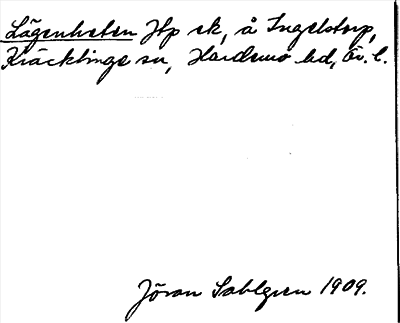 Lägenheten Htp sk, å Ingelstorp,
Kräcklinge sn, Hardemo hd, Ör. l.
Jöran Sahlgren 1909.